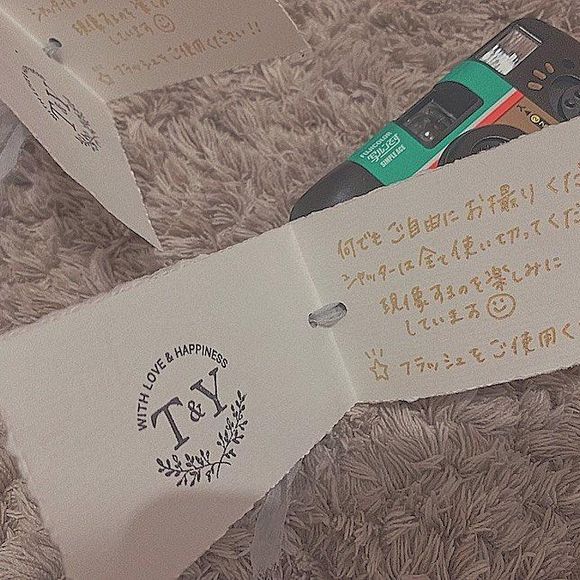 現像するのを楽しみに
しています☺
☆ フラッシュをご使用ください!!
T&Y
FUJICOLOR
写ルンです
SIMPLE ACE
何でもご自由にお撮りくだ
シャッターは全て使い切ってくだ
現像するのを楽しみに
しています☺
☆ フラッシュをご使用く
WITH LOVE & HAPPINESS
T&Y